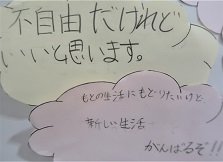 不自由だけれど
いいと思います。
もとの生活にもどりたいけど
新しい生活
がんばるぞ!!